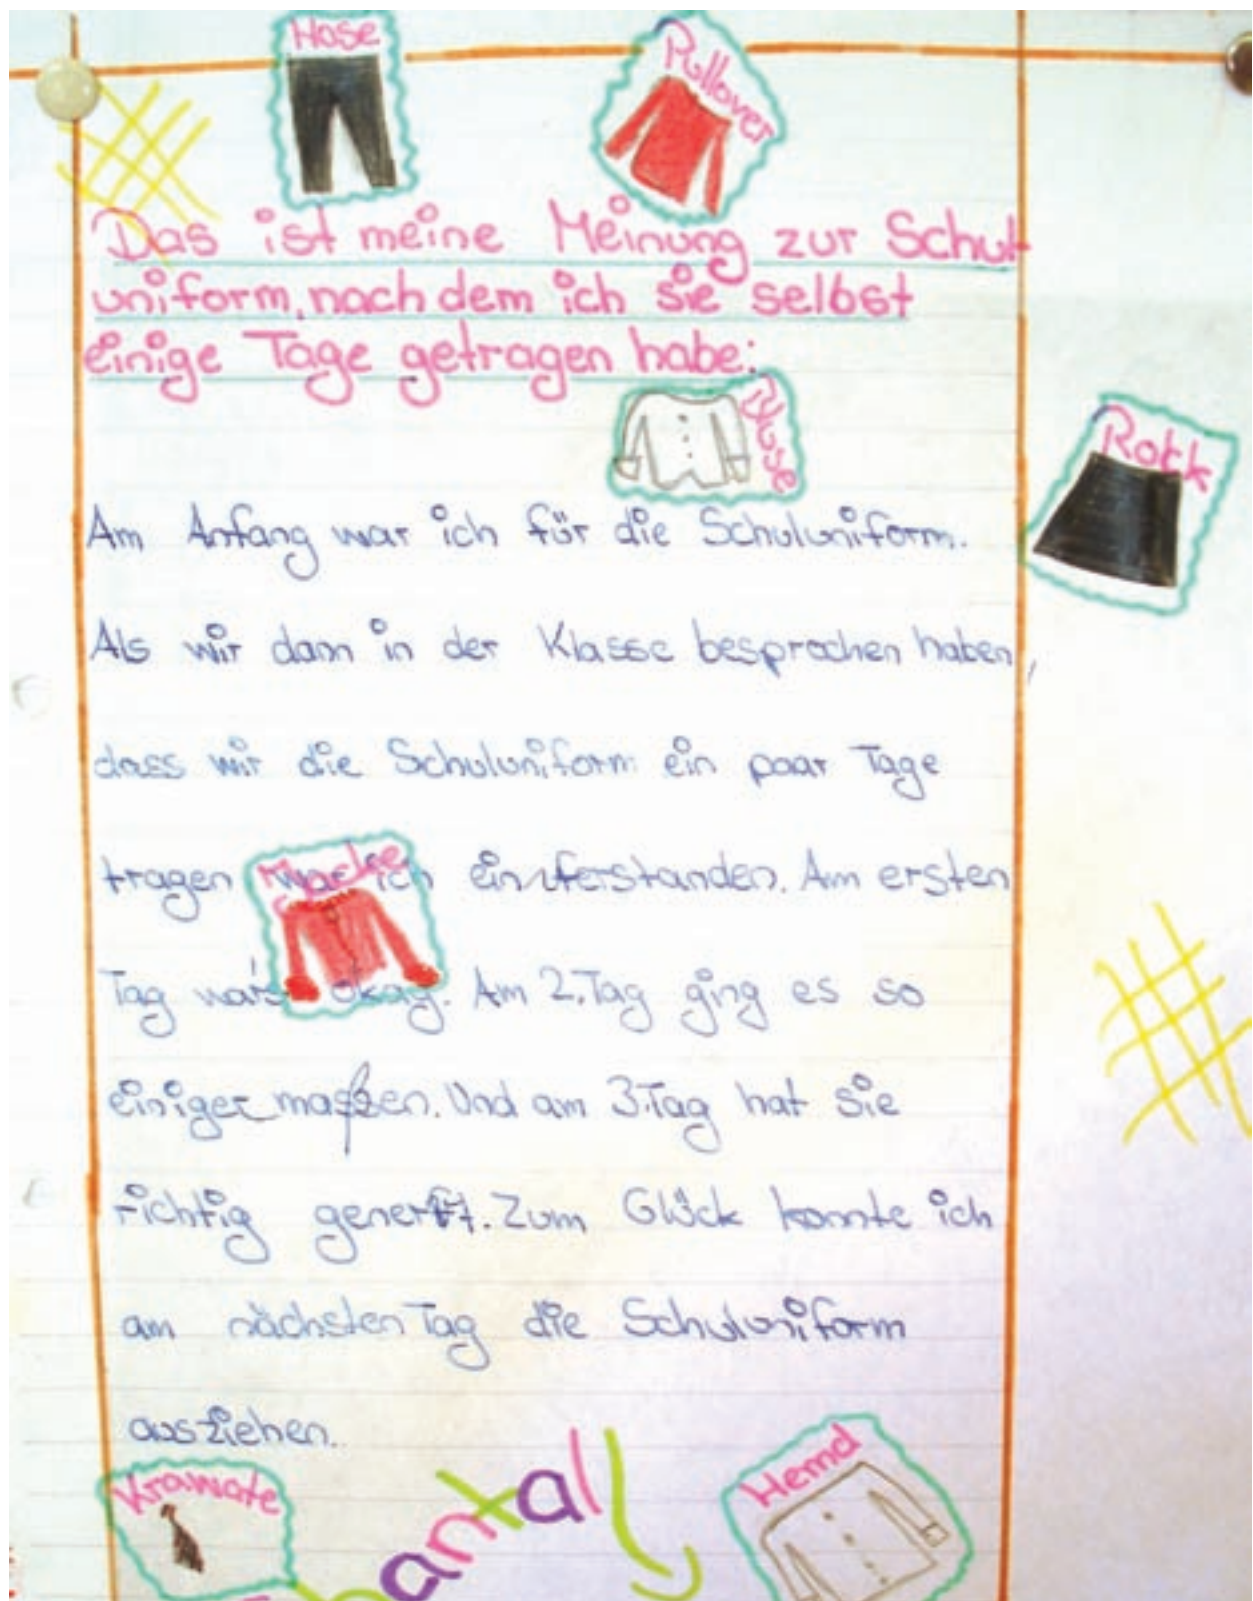 Hose
Pullover
Das ist meine Meinung zur Schul
uniform, nach dem ich sie selbst
einige Tage getragen habe:
Bluse
Rock
Am Anfang war ich für die Schuluniform.
Als wir dann in der Klasse besprochen haben,
dass wir die Schuluniform ein paar Tage
Jacke
tragen war ich einverstanden. Am ersten
Tag war's okay. Am 2. Tag ging es so
einigermaßen. Und am 3. Tag hat sie
richtig genervt. Zum Glück konnte ich
am nächsten Tag die Schuluniform
ausziehen.
Krawate
Hemd